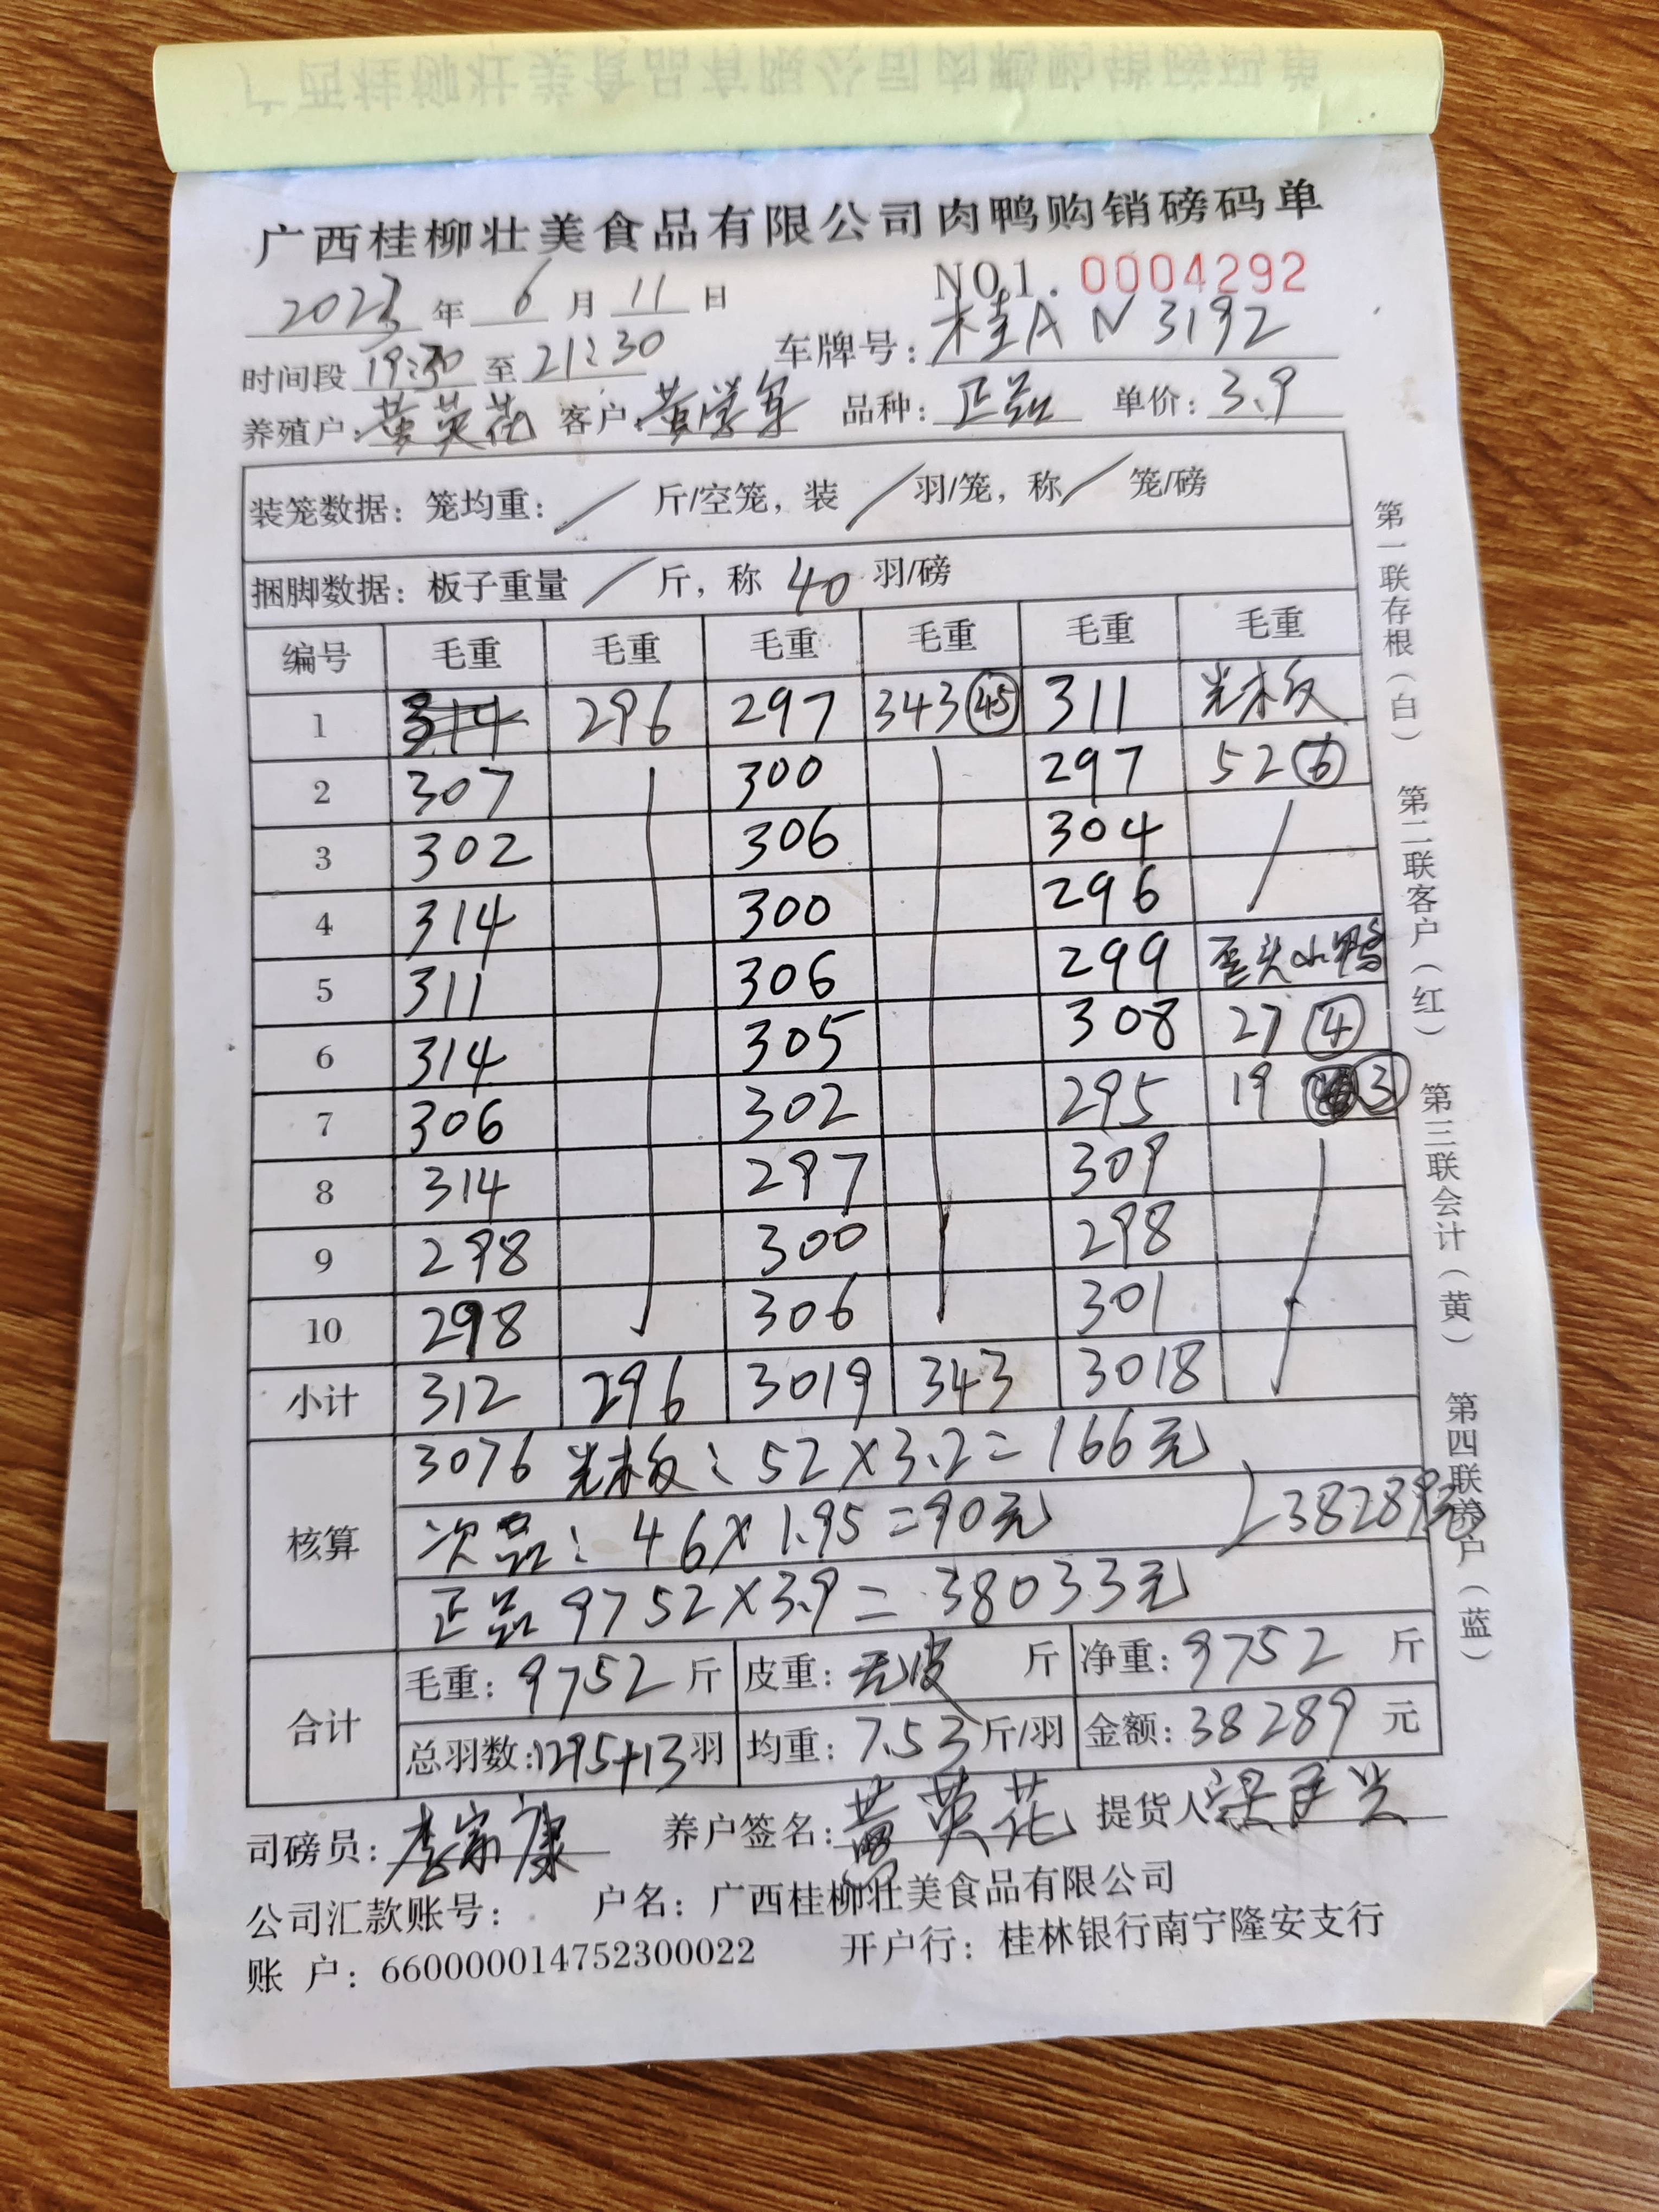 广西桂柳壮美食品有限公司肉鸭购销磅码单
NO1. 0004292
2023 年 6 月 11 日
时间段 19:30 至 21:30 车牌号: 桂A N3192
养殖户: 黄英花 客户: 黄学军 品种: 正品 单价: 3.9
装笼数据: 笼均重: / 斤/空笼, 装 / 羽/笼, 称 / 笼/磅
捆脚数据: 板子重量 / 斤, 称 40 羽/磅
编号 毛重 毛重 毛重 毛重 毛重 毛重
1 314 296 297 343 45 311 光木板
2 307 300 297 52 6
3 302 306 304
4 314 300 296
5 311 306 299 歪头小鸭
6 314 305 308 27 4
7 306 302 295 19 3
8 314 297 309
9 298 300 298
10 298 306 301
小计 312 296 3019 343 3018
核算 3076 光木板: 52×3.2=166元
次品: 46×1.95=90元 38289元
正品 9752×3.9=38033元
合计 毛重: 9752 斤 皮重: 无皮 斤 净重: 9752 斤
总羽数: 1295+13 羽 均重: 7.53 斤/羽 金额: 38289 元
司磅员: 李家康 养户签名: 黄英花 提货人
公司汇款账号: 户名: 广西桂柳壮美食品有限公司
账 户: 660000014752300022 开户行: 桂林银行南宁隆安支行
第一联存根(白) 第二联客户(红) 第三联会计(黄) 第四联养户(蓝)